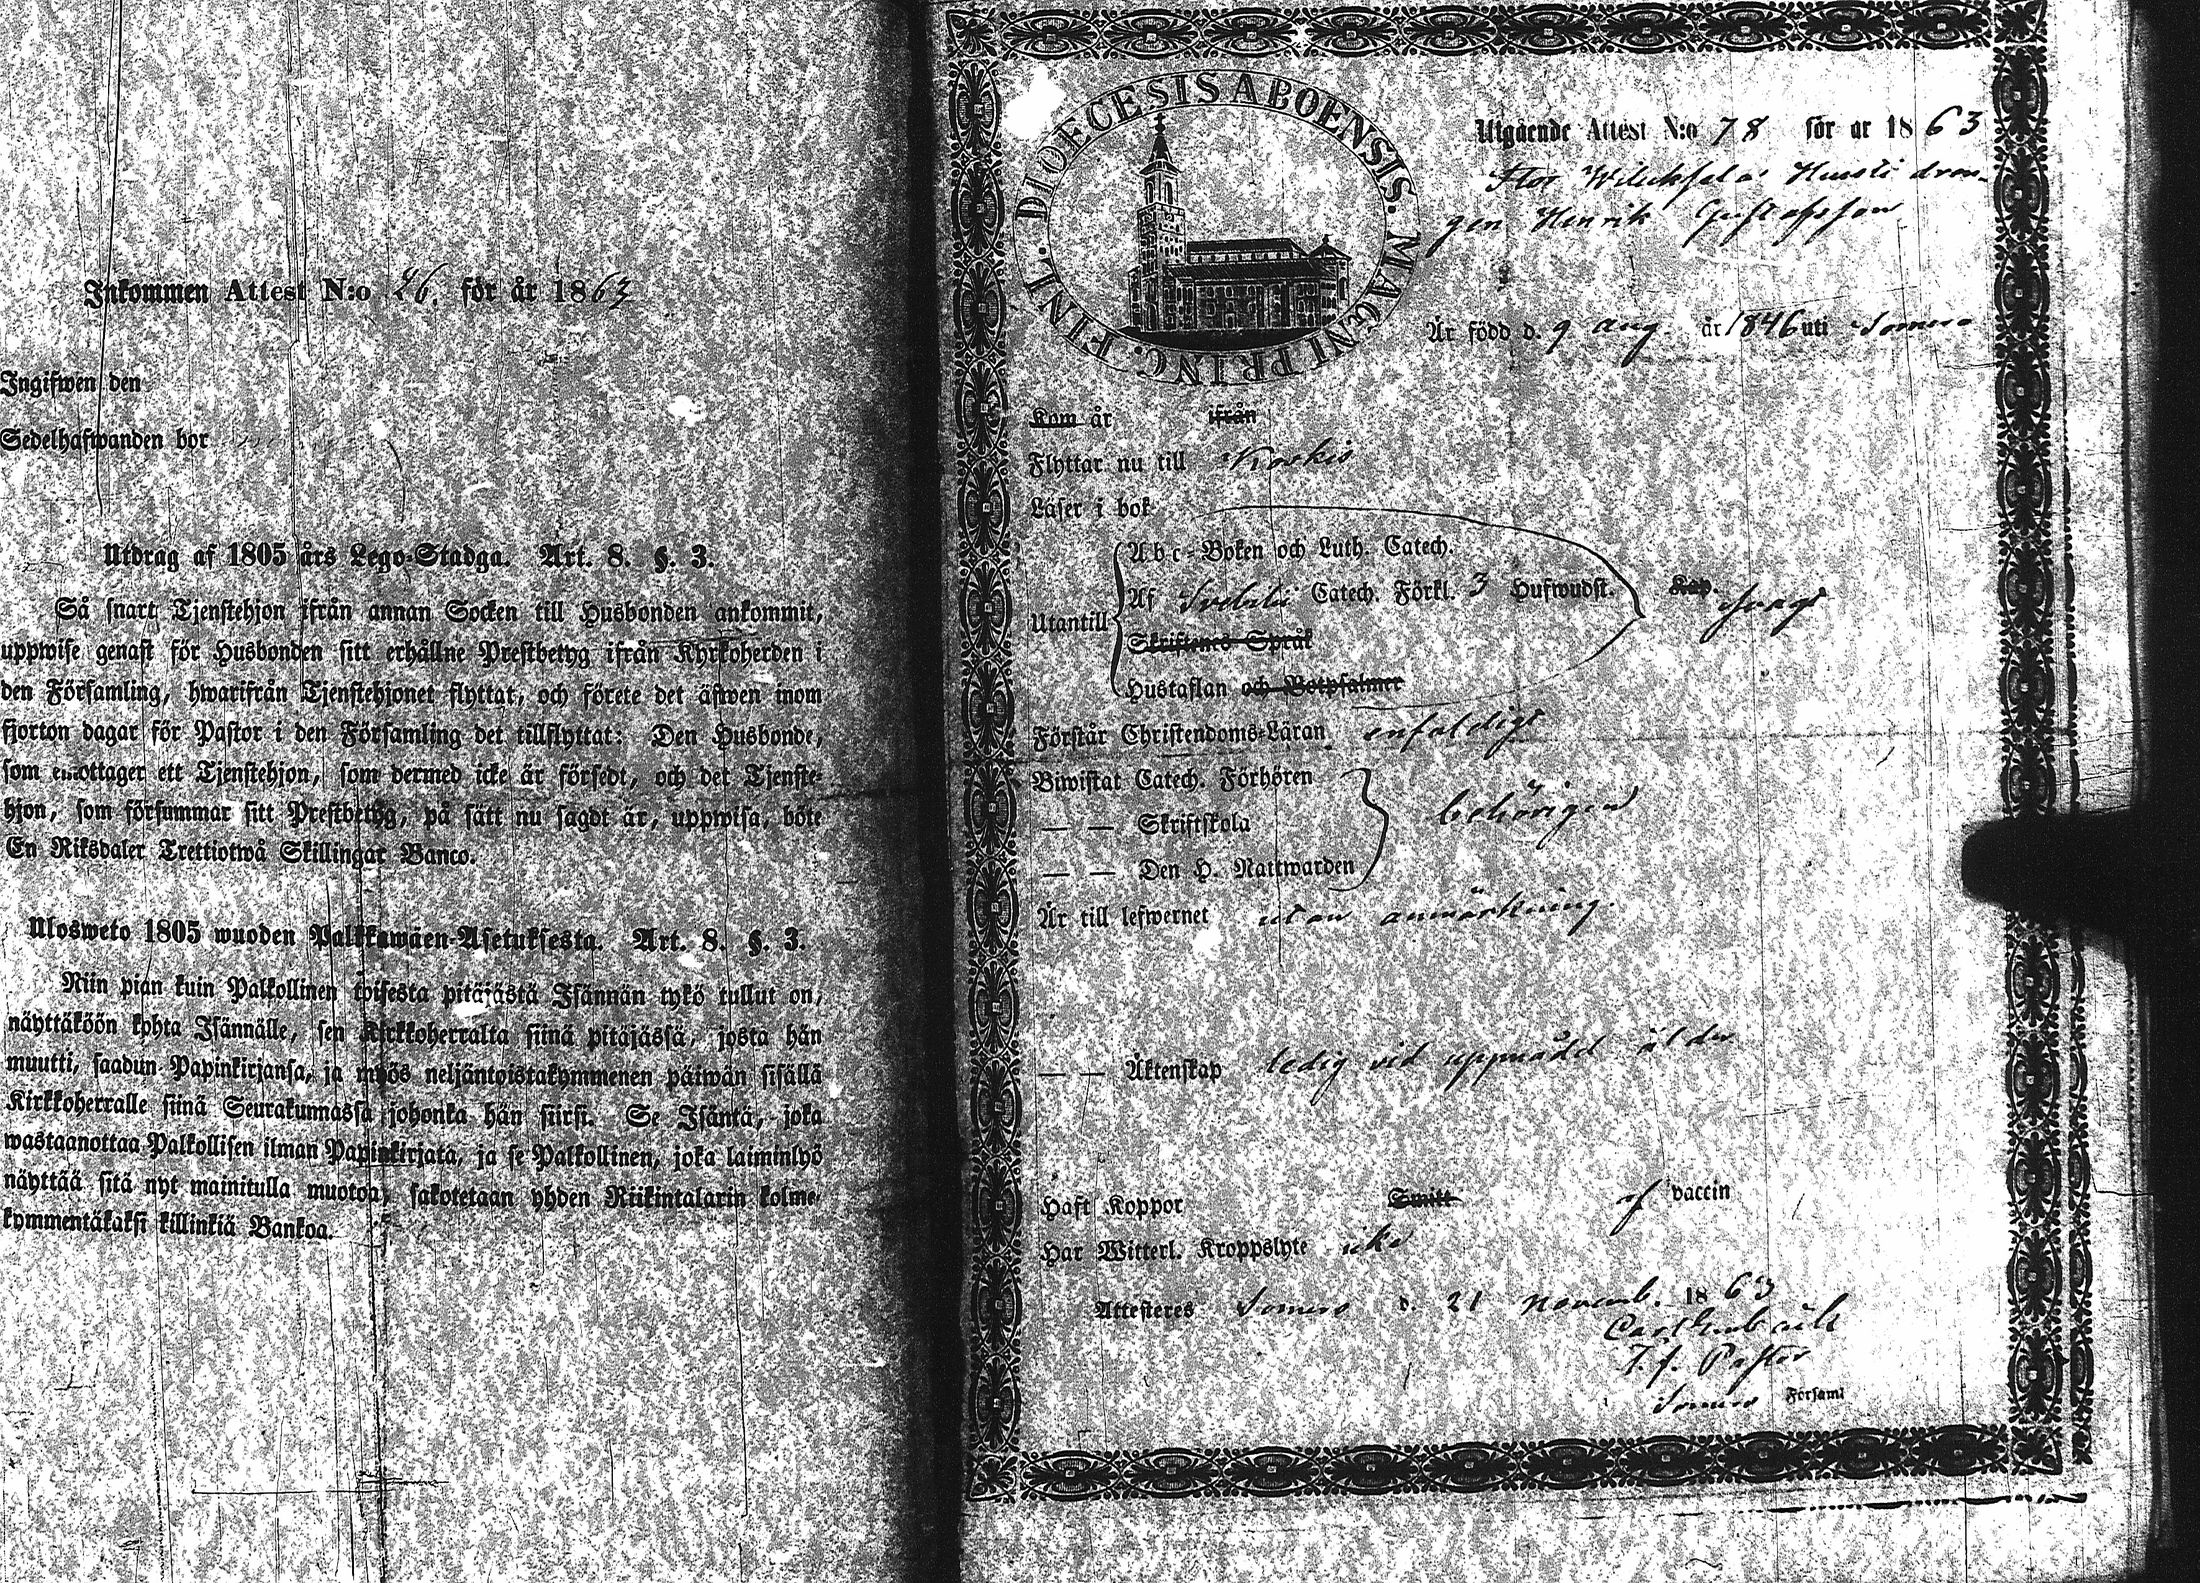 Inkommen Attest N:o 26. för år 1863
Ingifwen den
Sedelhafwanden bor
Utdrag af 1805 års Lego-Stadga. Art. 8. §. 3.
Så snart Tjenstehjon ifrån annan Socken till Husbonden ankommit,
uppwise genast för Husbonden sitt erhållne Prestbetyg ifrån Kyrkoherden i
den Församling, hwarifrån Tjenstehjonet flyttat, och förete det äfwen inom
fjorton dagar för Pastor i den Församling det tillflyttat: Den Husbonde,
som emottager ett Tjenstehjon, som dermed icke är försedt, och det Tjenste-
hjon, som försummar sitt Prestbetyg, på sätt nu sagdt är, uppwisa, böte
En Riksdaler Trettiotwå Skillingar Banco.
Ulosweto 1805 wuoden Palkkawäen-Asetuksesta. Art. 8. §. 3.
Niin pian kuin Palkollinen toisesta pitäjästä Isännän tykö tullut on,
näyttäköön kohta Isännälle, sen Kirkkoherralta siinä pitäjässä, josta hän
muutti, saadun Papinkirjansa, ja myös neljäntoistakymmenen päiwän sisällä
Kirkkoherralle siinä Seurakunnassa johonka hän siirsi. Se Isäntä, joka
wastaanottaa Palkollisen ilman Papinkirjata, ja se Palkollinen, joka laiminlyö
näyttää sitä nyt mainitulla muotoa, sakotetaan yhden Riikintalarin kolme-
kymmentäkaksi killinkiä Bankoa.
FINL. DIOECESIS ABOENSIS. MAGNI PRINC.
Utgående Attest N:o 78 för år 1863
drän-
gen Henrik Gustafsson
Är född d. 9 aug. år 1846 uti Somero
Kom år ifrån
Flyttar nu till Koskis
Läser i bok
Utantill
Abc-Boken och Luth. Catech.
Af Svebilii Catech. Förkl. 3 Hufwudst. Kap. svagt
Skriftenes Språk
Hustaflan och Botpsalmer
Förstår Christendoms-Läran enfaldigt
Biwistat Catech. Förhören
— — Skriftskola behörigen
— — Den H. Nattwarden
Är till lefwernet utan anmärkning.
— — Äktenskap ledig vid uppnådd ålder
Haft Koppor Smitt af vaccin
Har Witterl. Kroppslyte icke
Attesteras Somero d. 21 novemb. 1863
T. f. Pastor
Somero Församl